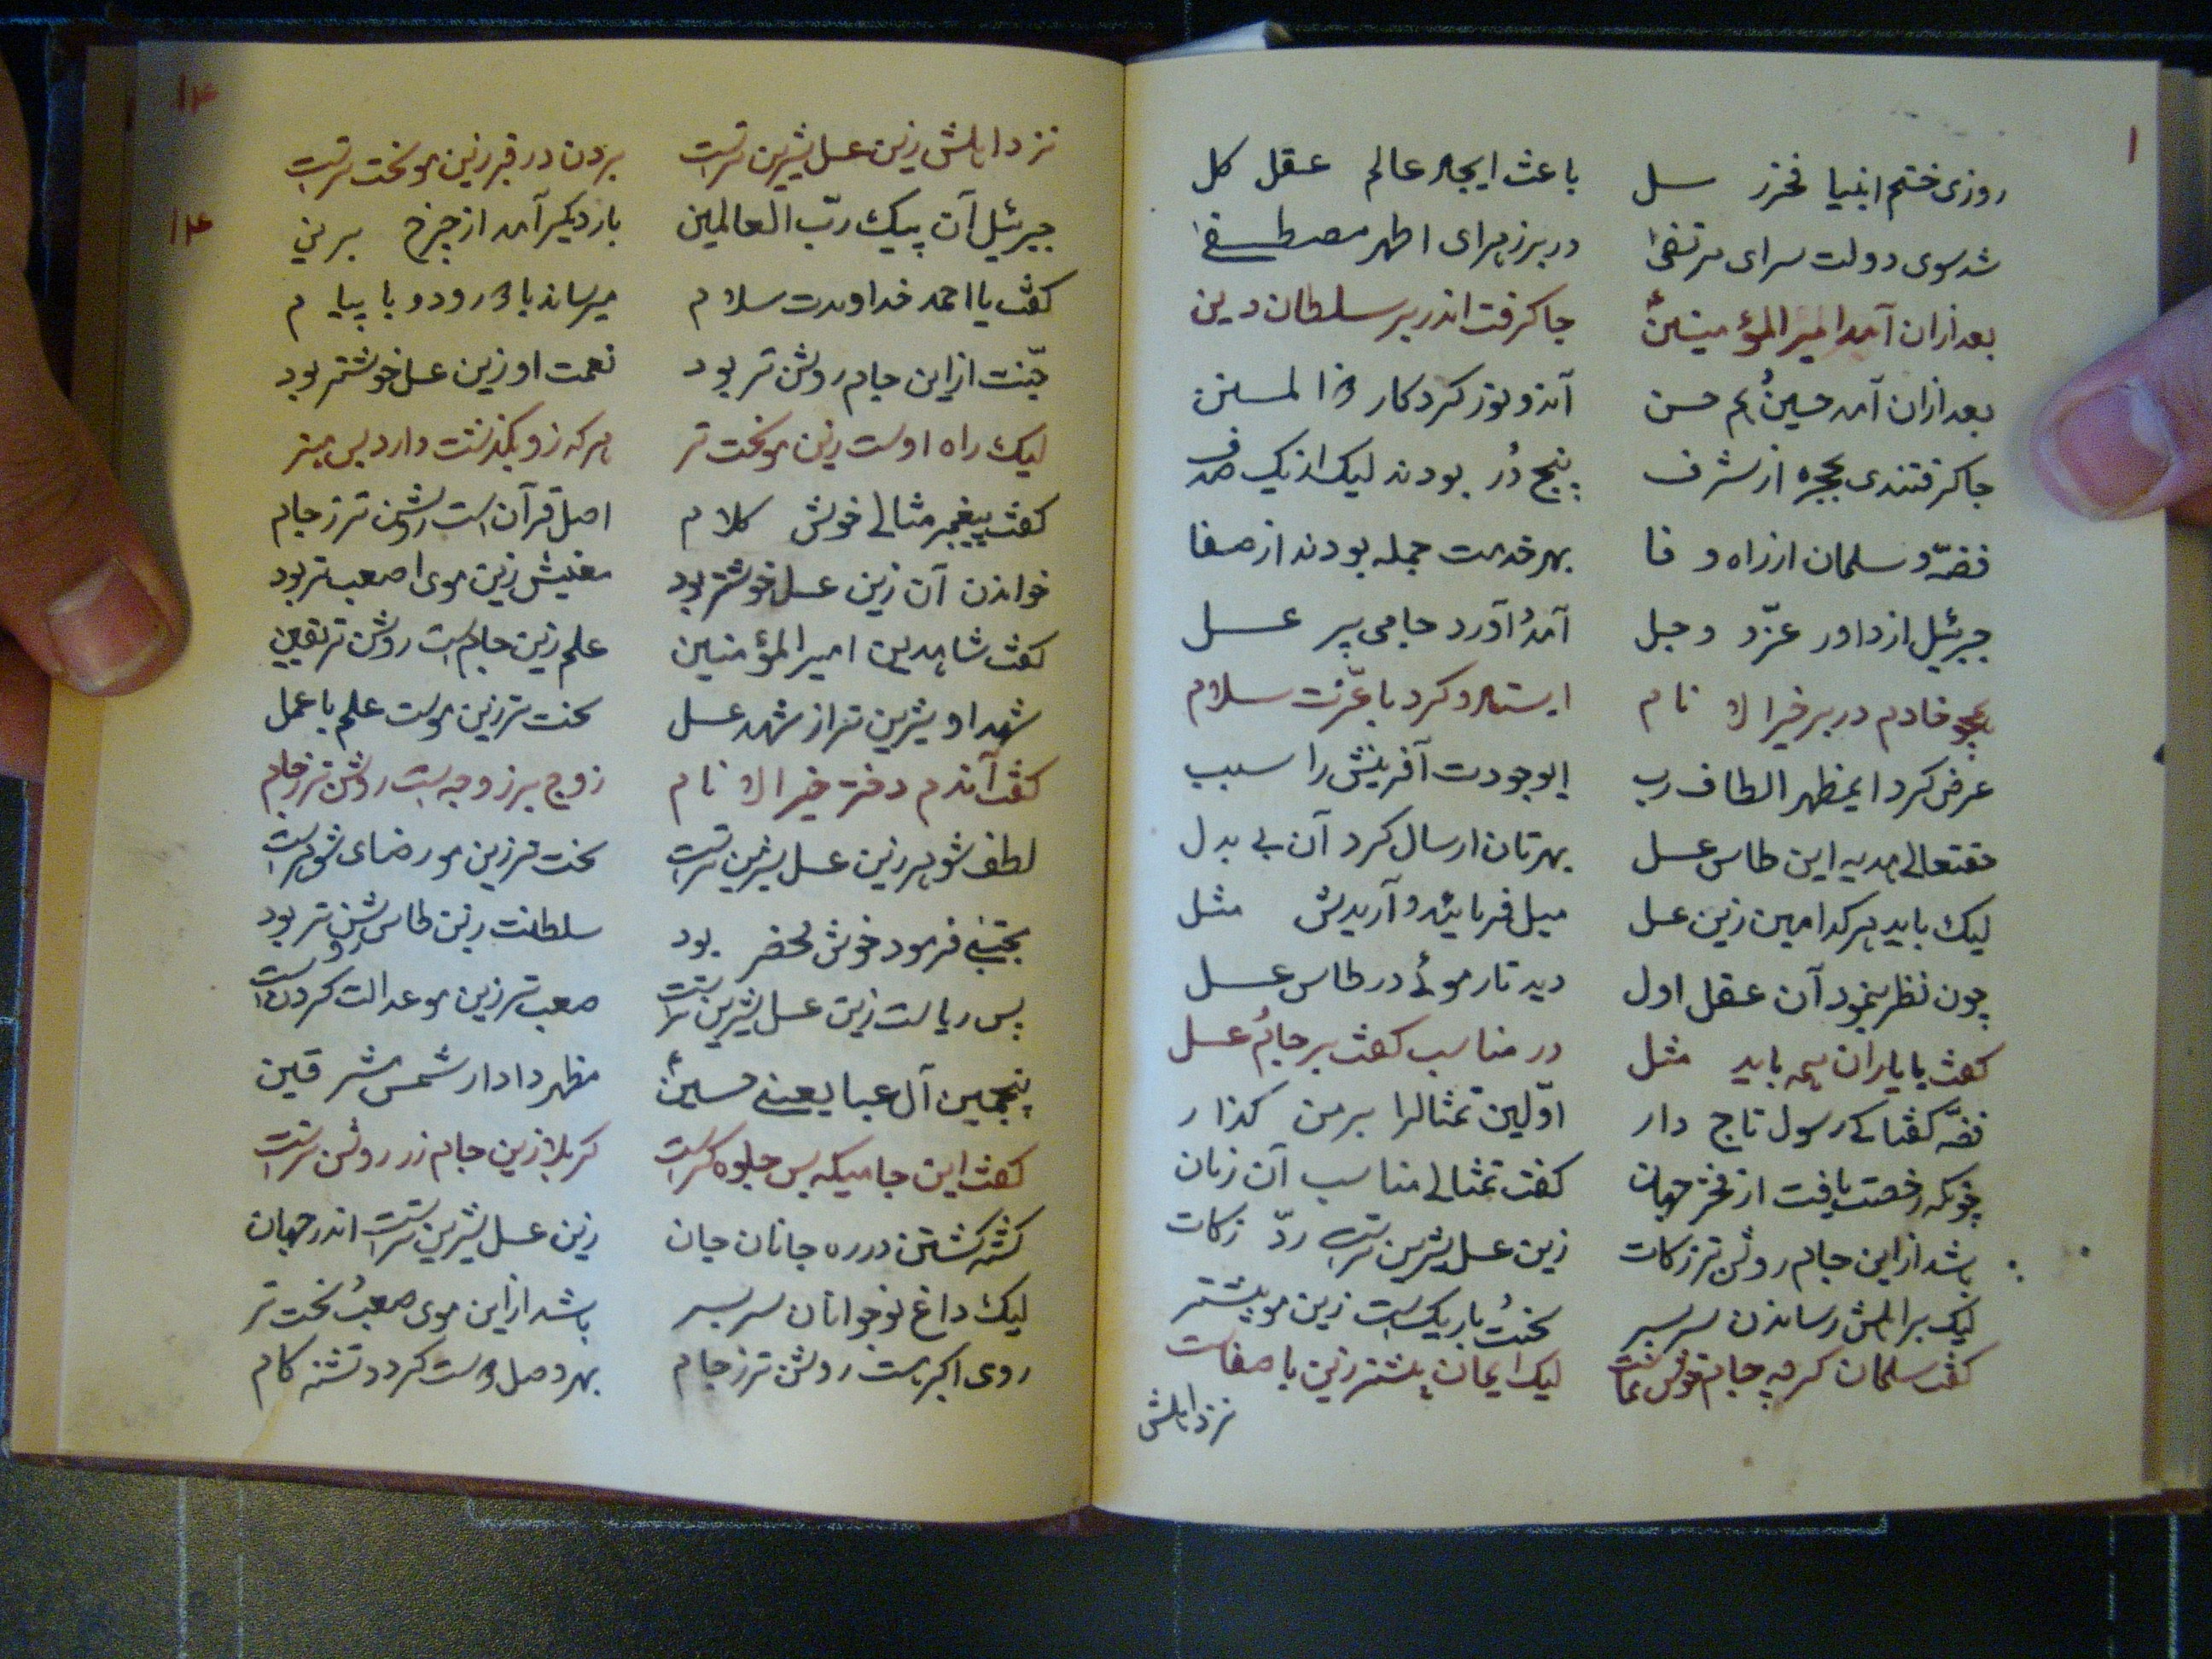 ۱
روزی ختم انبیا فخر رسل باعث ایجاد عالم عقل کل
شد سوی دولت سرای مرتضی در بر زهرای اطهر مصطفی
بعد ازان آمد امیرالمؤمنین جا کرفت اندر بر سلطان دین
بعد ازان آمد حسین هم حسن آندو نور کردکار ذالمنن
جا کرفتندی بحجره از شرف پنج دُر بودند لیک از یک صدف
فضّه و سلمان ز راه وفا بهر خدمت جمله بودند از صفا
جبرئیل از داور عزّ و جل آمد و آورد جامی پر عسل
همچو خادم در بر خیر الانام ایستاد و کرد با عزّت سلام
عرض کرد ای مظهر الطاف رب ایوجودت آفرینش را سبب
حقتعالی هدیه این طاس عسل بهرتان ارسال کرد آن بی بدل
لیک باید هر کدامین زین عسل میل فرمایند و آریدش مثل
چون نظر بنمود آن عقل اول دید تار موئی در طاس عسل
کفت با یاران همه باید مثل در مناسب کفت بر جام عسل
فضّه کفتا کی رسول تاج دار اوّلین تمثال را بر من کذار
چونکه رخصت یافت از فخر جهان کفت تمثالی مناسب آن زمان
باشد از این جام روشن تر زکات زین عسل شیرین تر است ردّ زکات
لیک بر اهلش رساندن سر بسر سخت و باریک است زین مو بیشتر
کفت سلمان کرچه جام خوش نماست لیک ایمان بیشتر زین با صفاست
نزد اهلش
۱۴
نزد اهلش زین عسل شیرین تر است بردن در قبر زین مو سخت تر است
۱۴
جبرئیل آن پیک ربّ العالمین بار دیکر آمد از چرخ برین
کفت یا احمد خداوندت سلام میرساند با درود و با پیام
جنّت از این جام روشن تر بود نعمت او زین عسل خوشتر بود
لیک راه اوست زین مو سخت تر هر که زو بکذشت دارد بس هنر
کفت پیغمبر مثالی خوش کلام اصل قرآن است روشن تر ز جام
خواندن آن زین عسل خوشتر بود معنیش زین موی اصعب تر بود
کفت شاه دین امیرالمؤمنین علم زین جام است روشن تر یقین
شهد او شیرین تر از شهد عسل سخت تر زین موست علم با عمل
کفت آندم دختر خیر الانام زوج بر زوجه است روشن تر ز جام
لطف شوهر زین عسل شیرین تر است سخت تر زین مو رضای شوهر است
مجتبی فرمود خوش محضر بود سلطنت زین طاس روشن تر بود
پس ریاست زین عسل شیرین تر است صعب تر زین مو عدالت کردن است
پنجمین آل عبا یعنی حسین مظهر دادار شمس مشرقین
کفت این جامیکه بس جلوه کر است کربلا زین جام زر روشن تر است
کشته کشتن در ره جانان جان زین عسل شیرین تر است اندر جهان
لیک داغ نوجوانان سر بسر باشد از این موی صعب و سخت تر
روی اکبر هست روشن تر ز جام بهر وصل دوست کردد تشنه کام